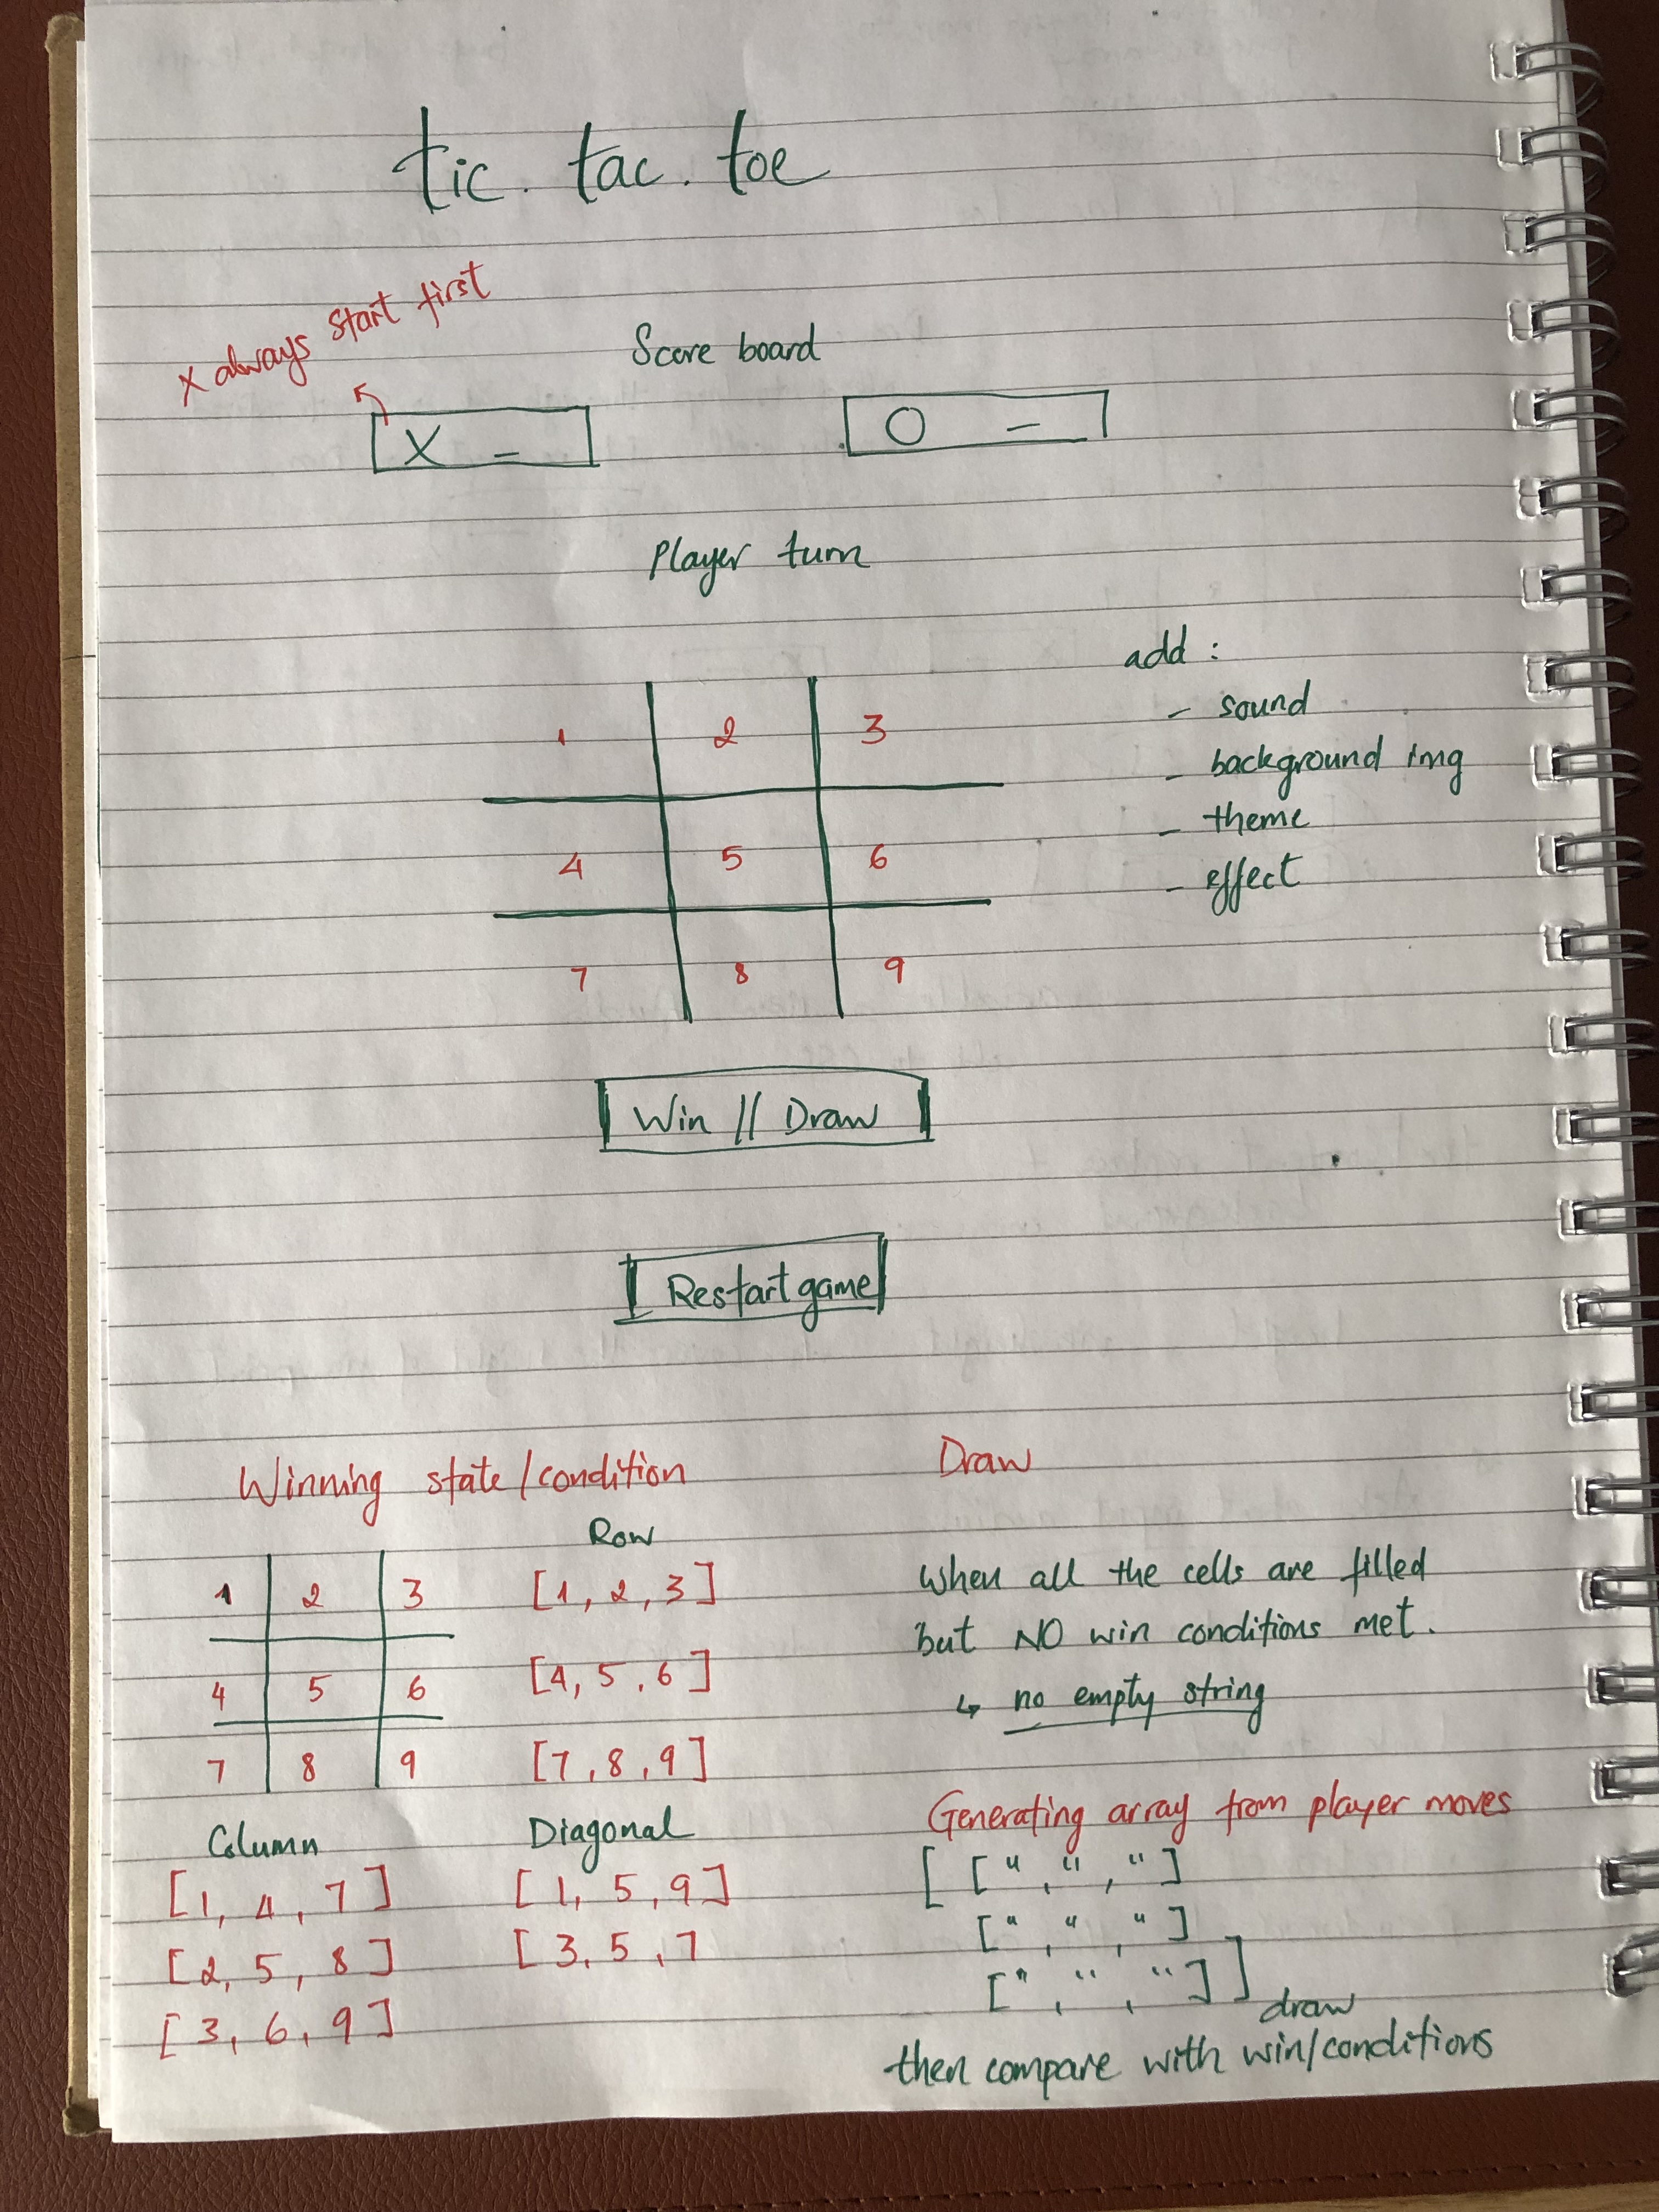 tic. tac. toe
x always start first
Score board
X -
O -
Player turn
1 2 3
4 5 6
7 8 9
add :
- sound
- background img
- theme
- effect
Win // Draw
Restart game
Winning state/condition
1 2 3
4 5 6
7 8 9
Row
[1, 2, 3]
[4, 5, 6]
[7, 8, 9]
Column
[1, 4, 7]
[2, 5, 8]
[3, 6, 9]
Diagonal
[1, 5, 9]
[3, 5, 7
Draw
When all the cells are filled
but NO win conditions met.
↳ no empty string
Generating array from player moves
[ [", ", "]
[", ", "]
[", ", "] ]
draw
then compare with win/conditions